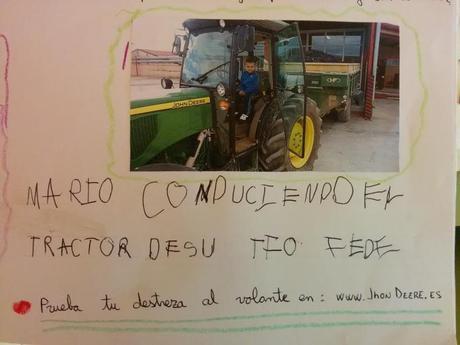 JOHN DEERE
MARIO CONDUCIENDO EL
TRACTOR DE SU TIO FEDE
Prueba tu destreza al volante en: www.JhonDeere.es